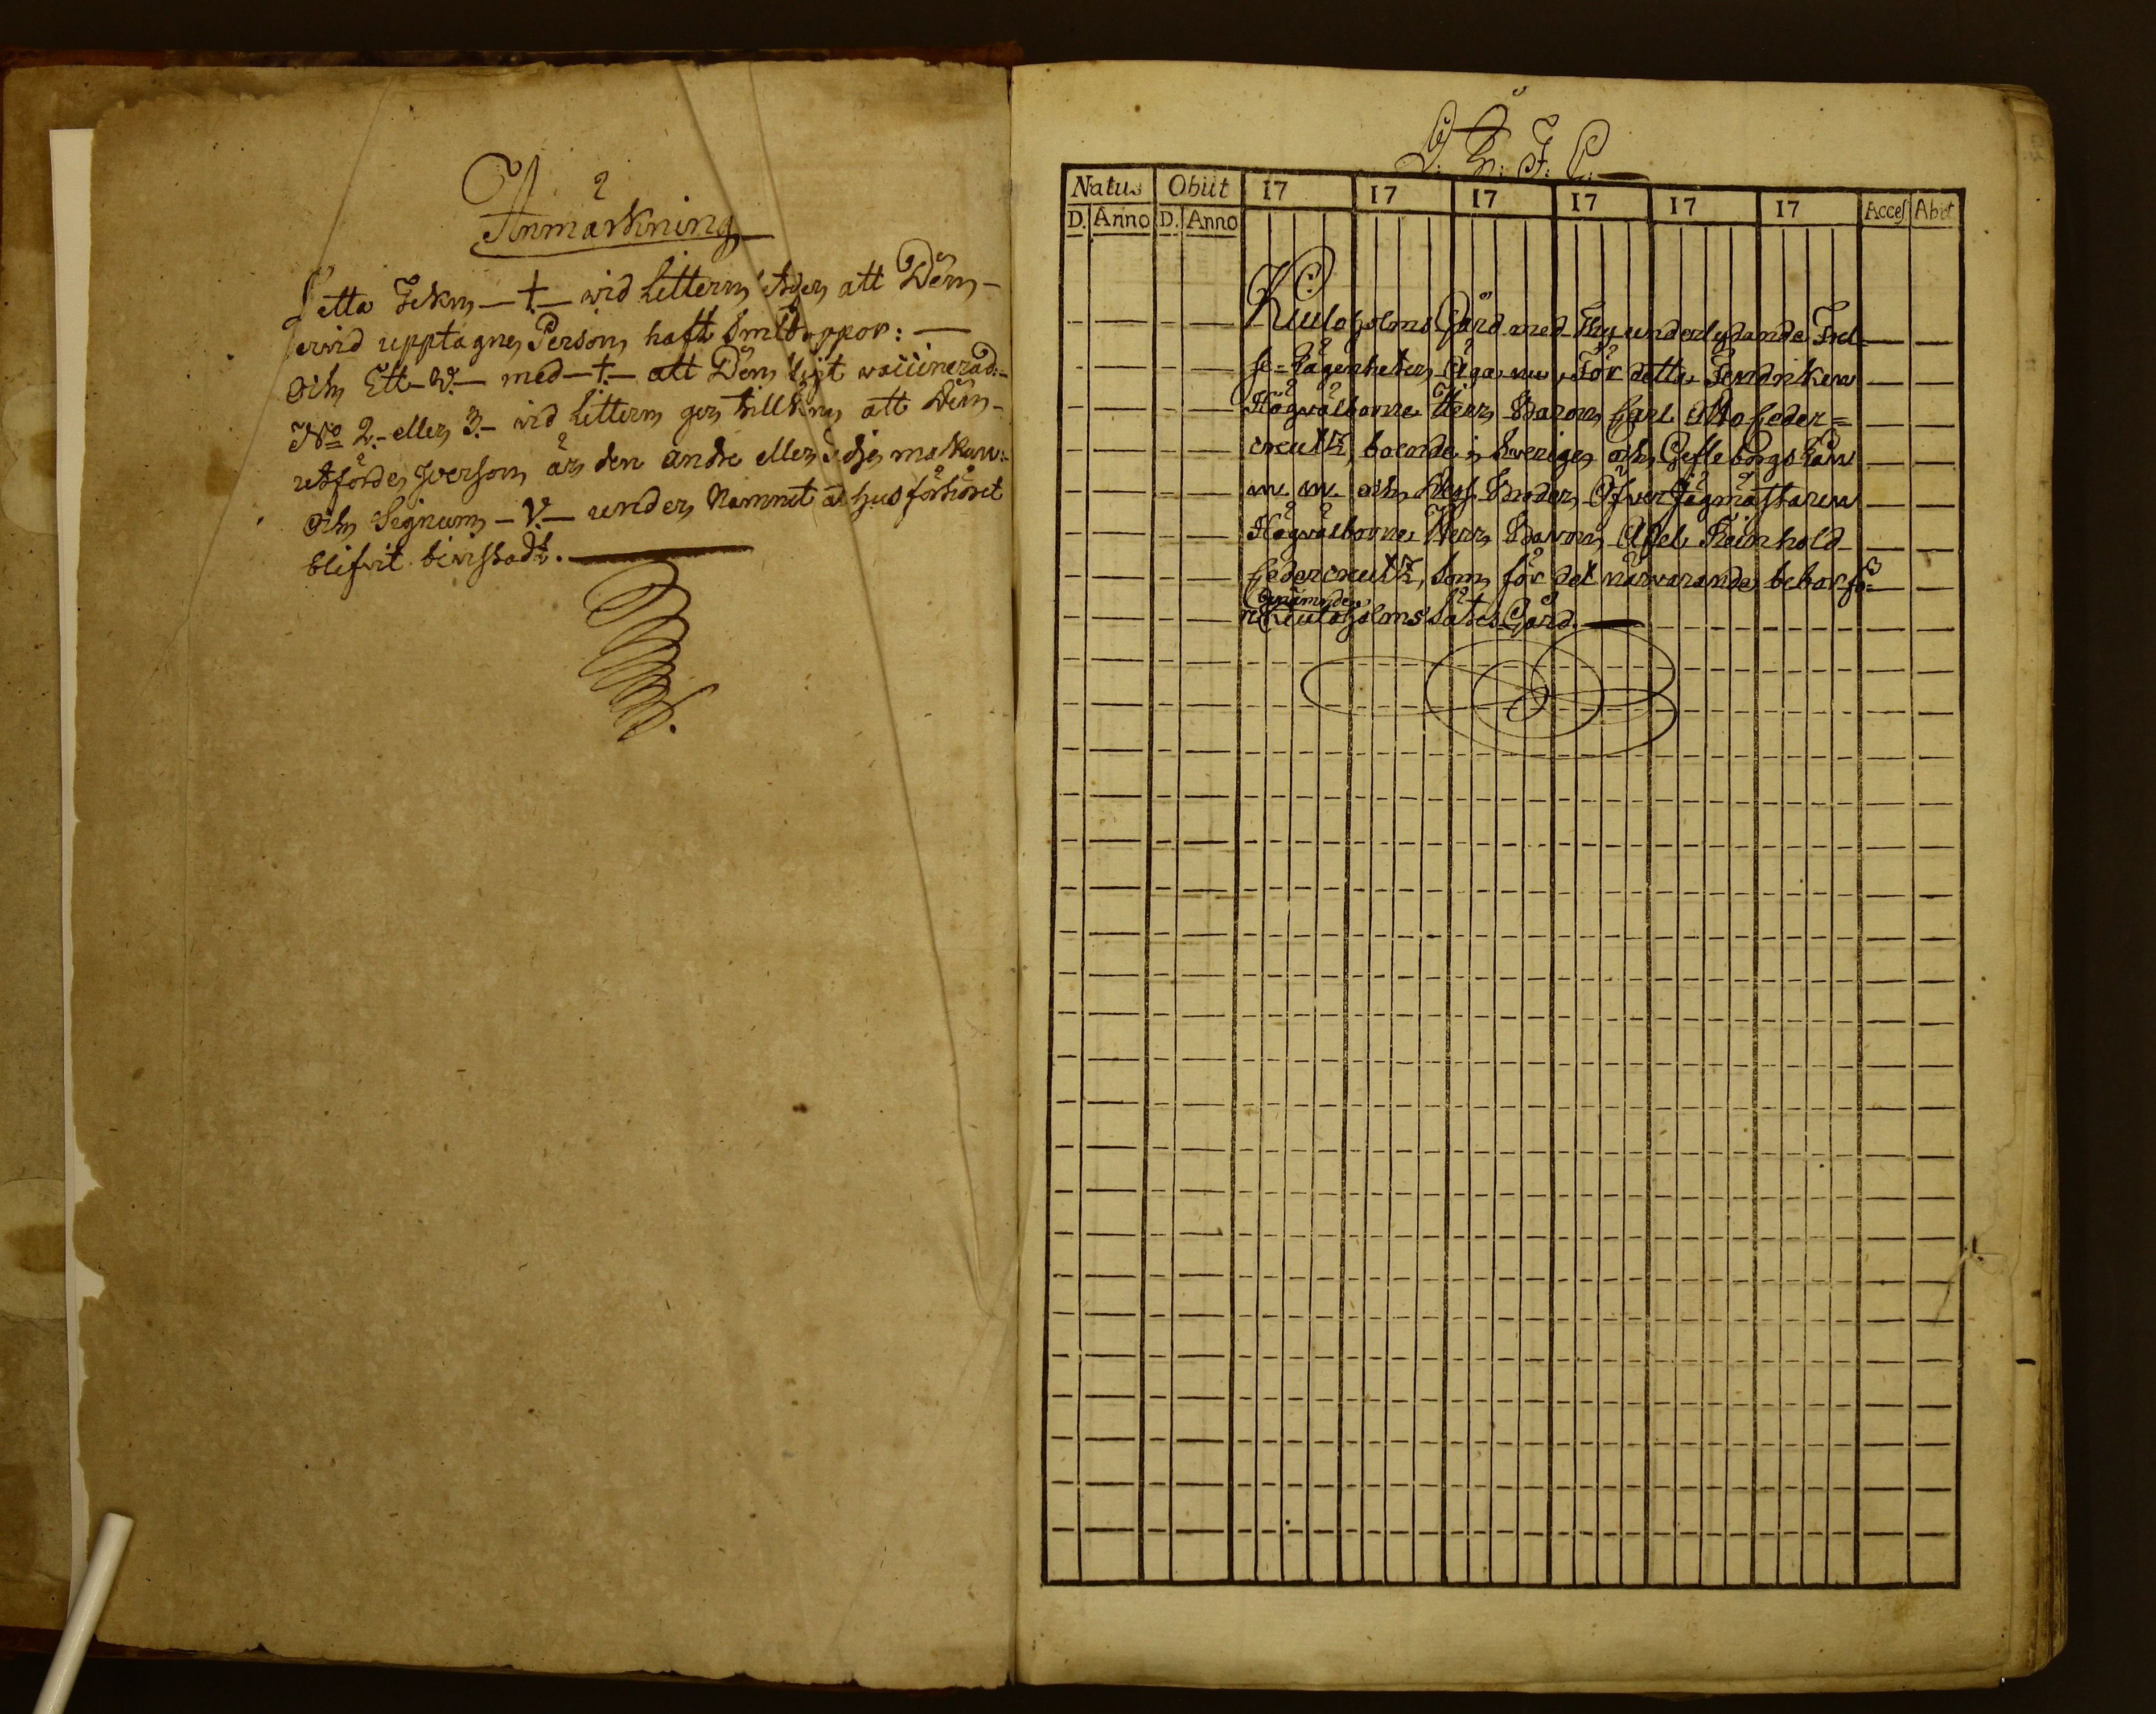 Anmärkning
Detta Tekn — † — wid Littern utvisar att Den
derwid upptagne Person haft Smittkoppor: —
och Ett — V. — med — † — att Den ligt waccinerad: —
No 2. — eller 3. — wid Littern ger tillkänna att Den
utförde Person är den andra eller 3dje makan:
och Signum — V. — under Namnet at husförhöret
blifvit bewistadt. —
D. G. J. C. —
Natus Obiit 17 17 17 17 17 17 Acces Abit
D. Anno D. Anno
Kiuloholms Gård med Thy underlydande Fräl-
se-Lägenheter, Äga nu, För detta Fendriken
Högwälborne Herr Baron Carl Otto Ceder=
creutz, boende i Swerige och Gefleborgs Län
m. m. och Dess Broder, Öfver Jägmästaren
Högwälborne Herr Baron Axel Reinhold
Cedercreutz, som för det närvarande bebor fö-
benämnde
r Kiuloholms Sätes Gård. —